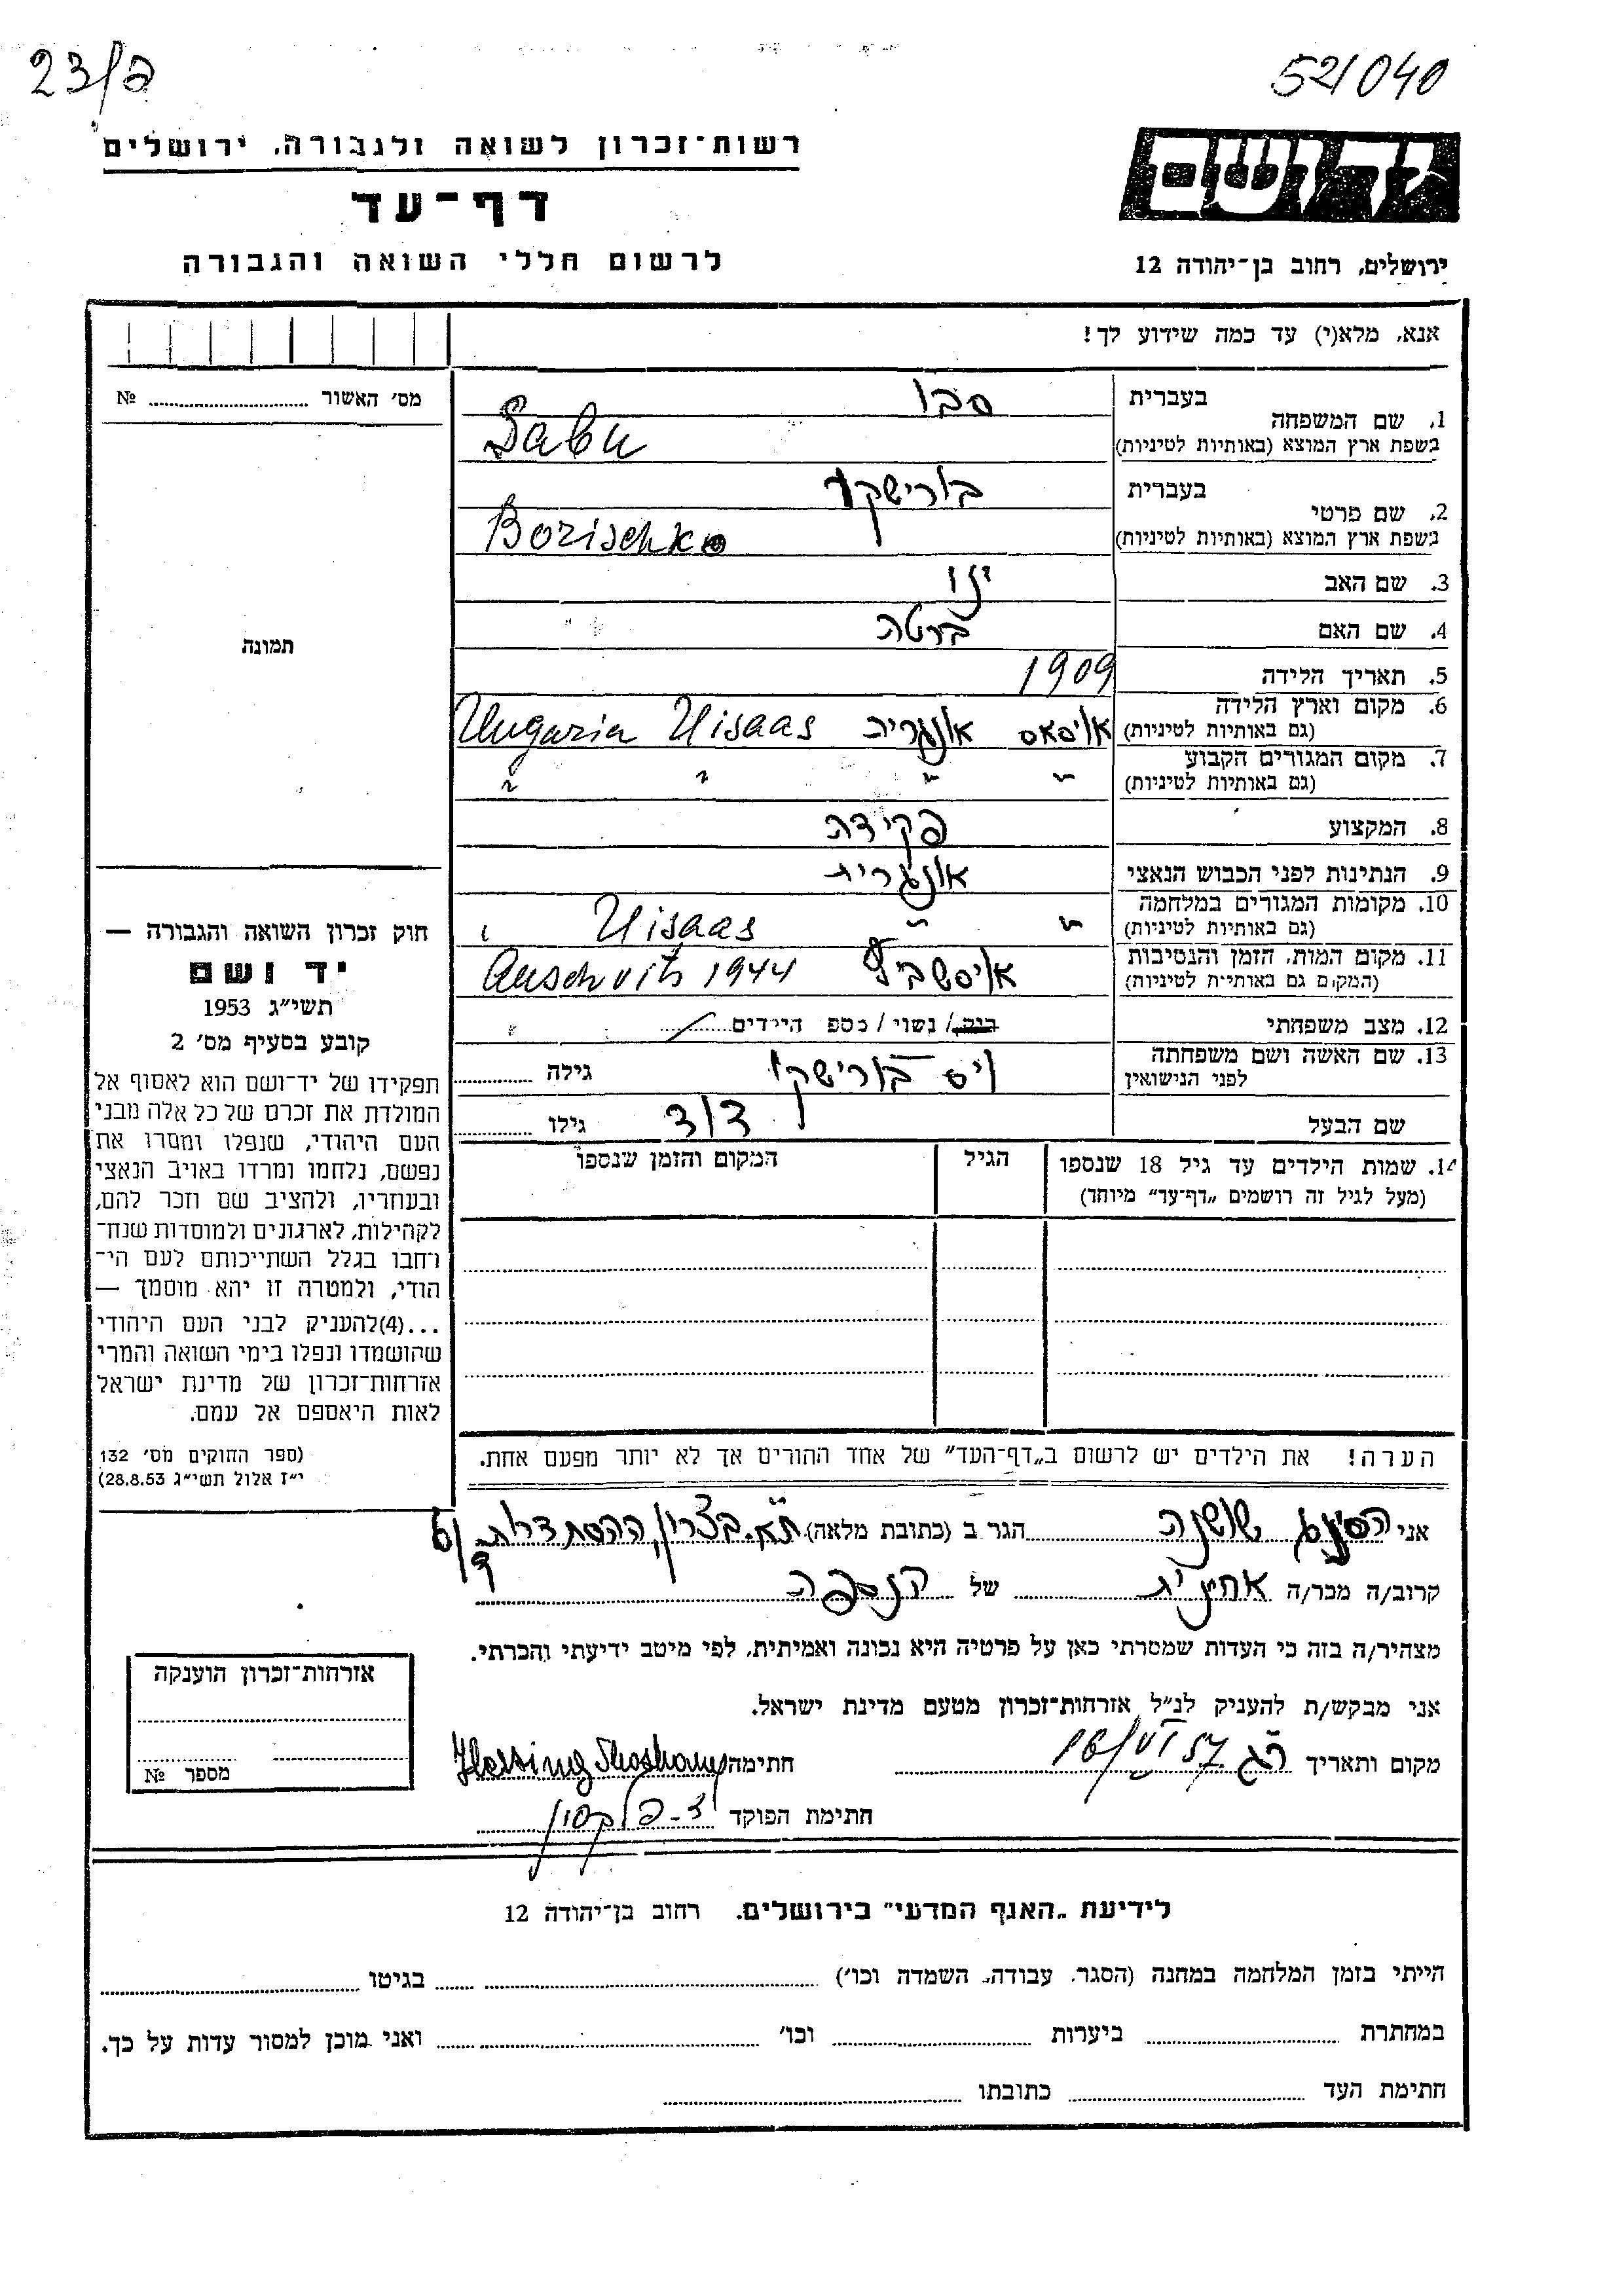 23/ב
521040
יד ושם
רשות־זכרון לשואה ולגבורה, ירושלים
דף־עד
לרשום חללי השואה והגבורה
ירושלים, רחוב בן־יהודה 12
אנא, מלא(י) עד כמה שידוע לך!
מס׳ האשור № 
תמונה
חוק זכרון השואה והגבורה —
יד ושם
תשי״ג 1953
קובע בסעיף מס׳ 2
תפקידו של יד־ושם הוא לאסוף אל
המולדת את זכרם של כל אלה מבני
העם היהודי, שנפלו ומסרו את
נפשם, נלחמו ומרדו באויב הנאצי
ובעוזריו, ולהציב שם וזכר להם,
לקהילות, לארגונים ולמוסדות שנח־
רחבו בגלל השתייכותם לעם הי־
הודי, ולמטרה זו יהא מוסמך —
...(4)להעניק לבני העם היהודי
שהושמדו ונפלו בימי השואה והמרי
אזרחות־זכרון של מדינת ישראל
לאות היאספם אל עמם.
(ספר החוקים מס׳ 132
י״ז אלול תשי״ג 28.8.53)
בעברית סבו
1. שם המשפחה
בשפת ארץ המוצא (באותיות לטיניות) Sabu
בעברית בורישקו
2. שם פרטי
בשפת ארץ המוצא (באותיות לטיניות) Borischko
3. שם האב ינו
4. שם האם ברטה
5. תאריך הלידה 1909
6. מקום וארץ הלידה
(גם באותיות לטיניות) אויסאס אונגריה Uisaas Ungaria
7. מקום המגורים הקבוע
(גם באותיות לטיניות) ״ ״ ״ ״
8. המקצוע פקידה
9. הנתינות לפני הכבוש הנאצי אונגרית
10. מקומות המגורים במלחמה
(גם באותיות לטיניות) ״ ״ Uisaas
11. מקום המות, הזמן והנסיבות
(המקום גם באותיות לטיניות) אוישביץ Auschvits 1944
12. מצב משפחתי רוק/נשוי/מספר הילדים
13. שם האשה ושם משפחתה
לפני הנישואין ויס בורישקו גילה
שם הבעל דוד גילו
14. שמות הילדים עד גיל 18 שנספו הגיל המקום והזמן שנספו
(מעל לגיל זה רושמים „דף־עד״ מיוחד)
הערה! את הילדים יש לרשום ב„דף־העד״ של אחד ההורים אך לא יותר מפעם אחת.
אני הסינג שושנה הגר ב (כתובת מלאה) ת״א. בצרון, ההסתדרות
קרוב/ה מכר/ה אחינית של הנספה
מצהיר/ה בזה כי העדות שמסרתי כאן על פרטיה היא נכונה ואמיתית, לפי מיטב ידיעתי והכרתי.
אני מבקש/ת להעניק לנ״ל אזרחות־זכרון מטעם מדינת ישראל.
מקום ותאריך ר״ג 16/VI 57 חתימה Hessing Shoshana
חתימת הפוקד
אזרחות־זכרון הוענקה
מספר №
לידיעת „האגף המדעי״ בירושלים. רחוב בן־יהודה 12
הייתי בזמן המלחמה במחנה (הסגר, עבודה, השמדה וכו׳) בגיטו
במחתרת ביערות וכו׳ ואני מוכן למסור עדות על כך.
חתימת העד כתובתו